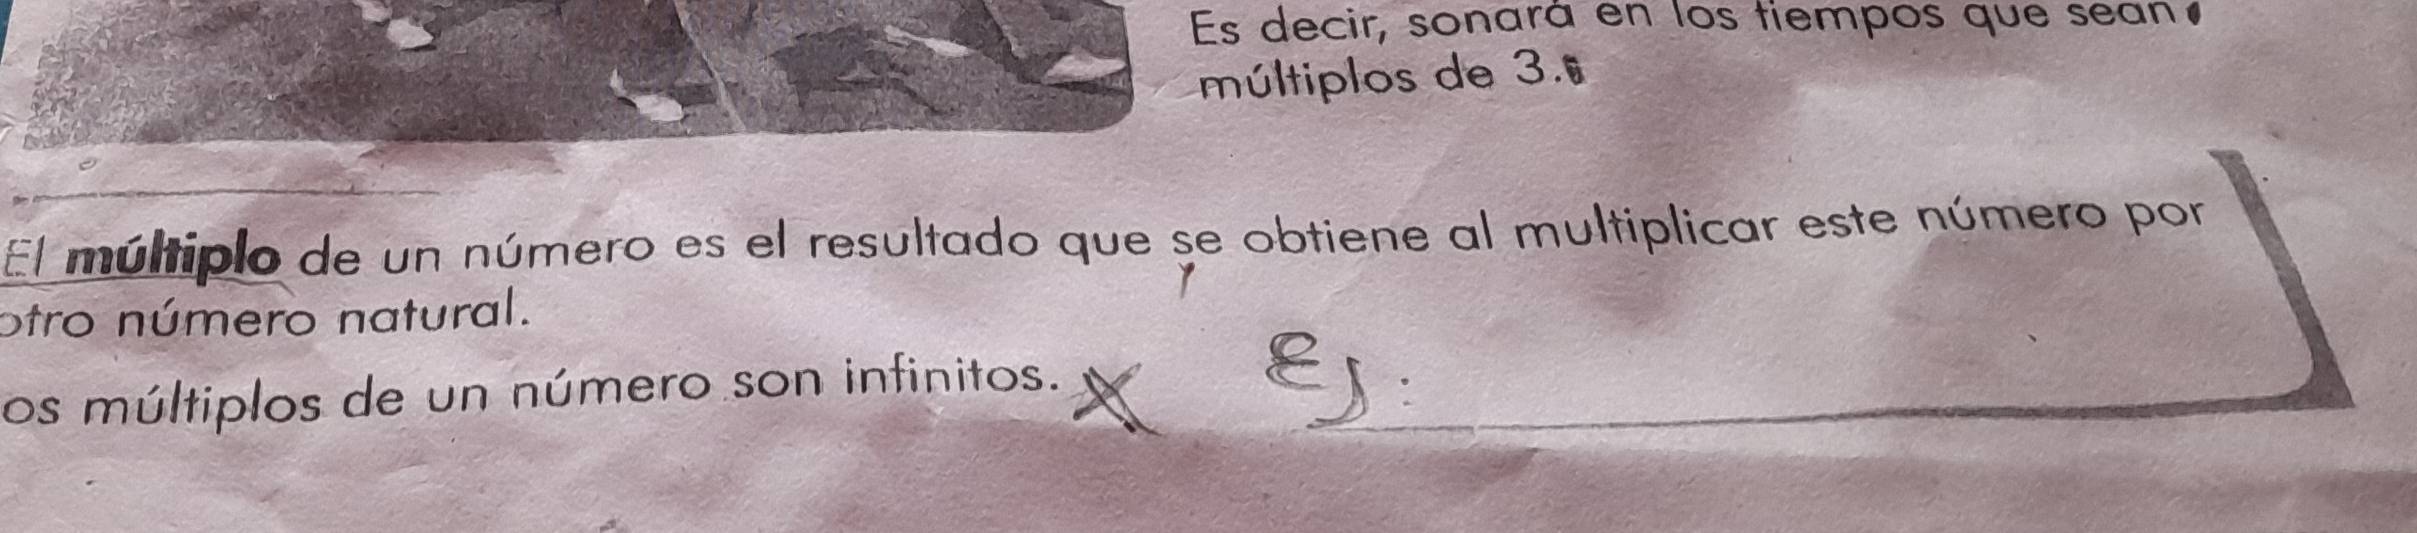 Es decir, sonará en los tiempos que sean
múltiplos de 3.
El múltiplo de un número es el resultado que se obtiene al multiplicar este número por
otro número natural.
os múltiplos de un número son infinitos. X Ej: